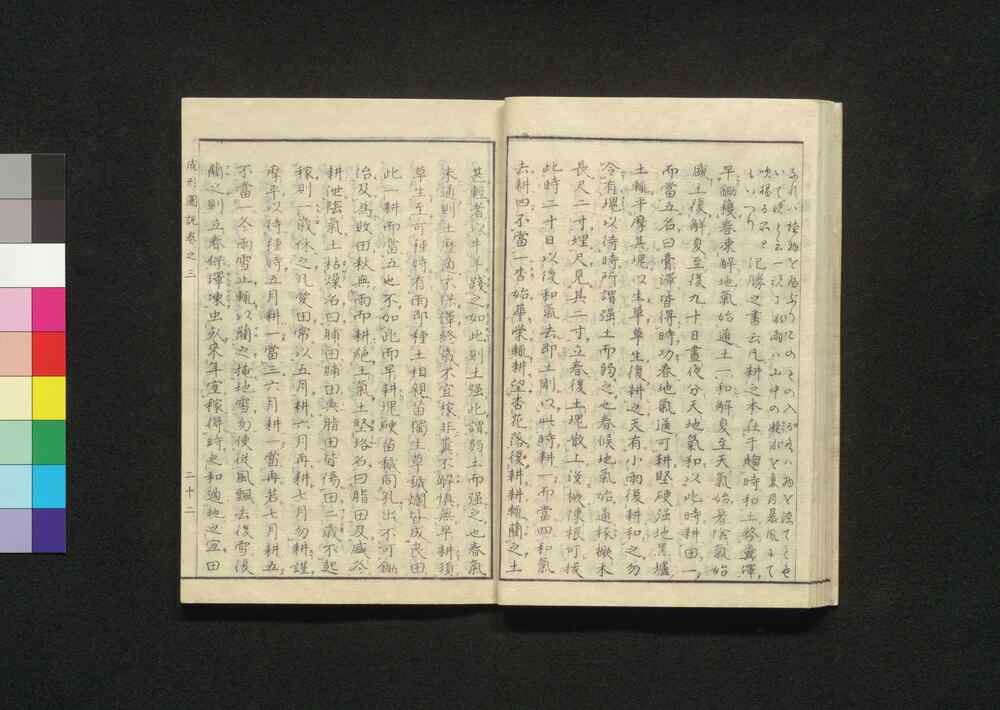 氾勝之書云凡耕之本在于趨時和土務糞澤
早鋤穫春凍解地氣始通土一和解夏至天氣始暑陰氣始
盛土復解夏至後九十日晝夜分天地氣和以此時耕田一
而當五名曰膏澤皆得時功春地氣通可耕堅硬强地黑壚
土輒平摩其塊以生草草生復耕之天有小雨復耕和之勿
令有塊以待時所謂强土而弱之也春候地氣始通椓橛木
長尺二寸埋尺見其二寸立春後土塊散上沒橛陳根可拔
此時二十日以後和氣去即土剛以此時耕一而當四和氣
去耕四不當一杏始華榮輒耕望杏花落復耕耕輒藺之土
甚輕者以牛羊踐之如此則土强此謂弱土而强之也春氣
未通則土歷適不保澤終歲不宜稼非糞不解慎無早耕須
草生至可種時有雨即種土相親苗獨生草穢爛皆成良田
此一耕而當五也不加此而早耕塊硬苗穢同孔出不可鋤
治反爲敗田秋無雨而耕絶土氣土堅垎名曰脂田及盛冬
耕泄陰氣土枯燥名曰脯田脯田與脂田皆傷田二歲不起
稼則一歲休之凡愛田常以五月耕六月再耕七月勿耕謹
摩平以待種時五月耕一當三六月耕一當再若七月耕五
不當一冬雨雪止輒以藺之掩地雪勿使從風飄去後雪復
藺之則立春保澤凍虫死來年宜稼得時之和適地之宜田
成形圖說卷之三
二十二